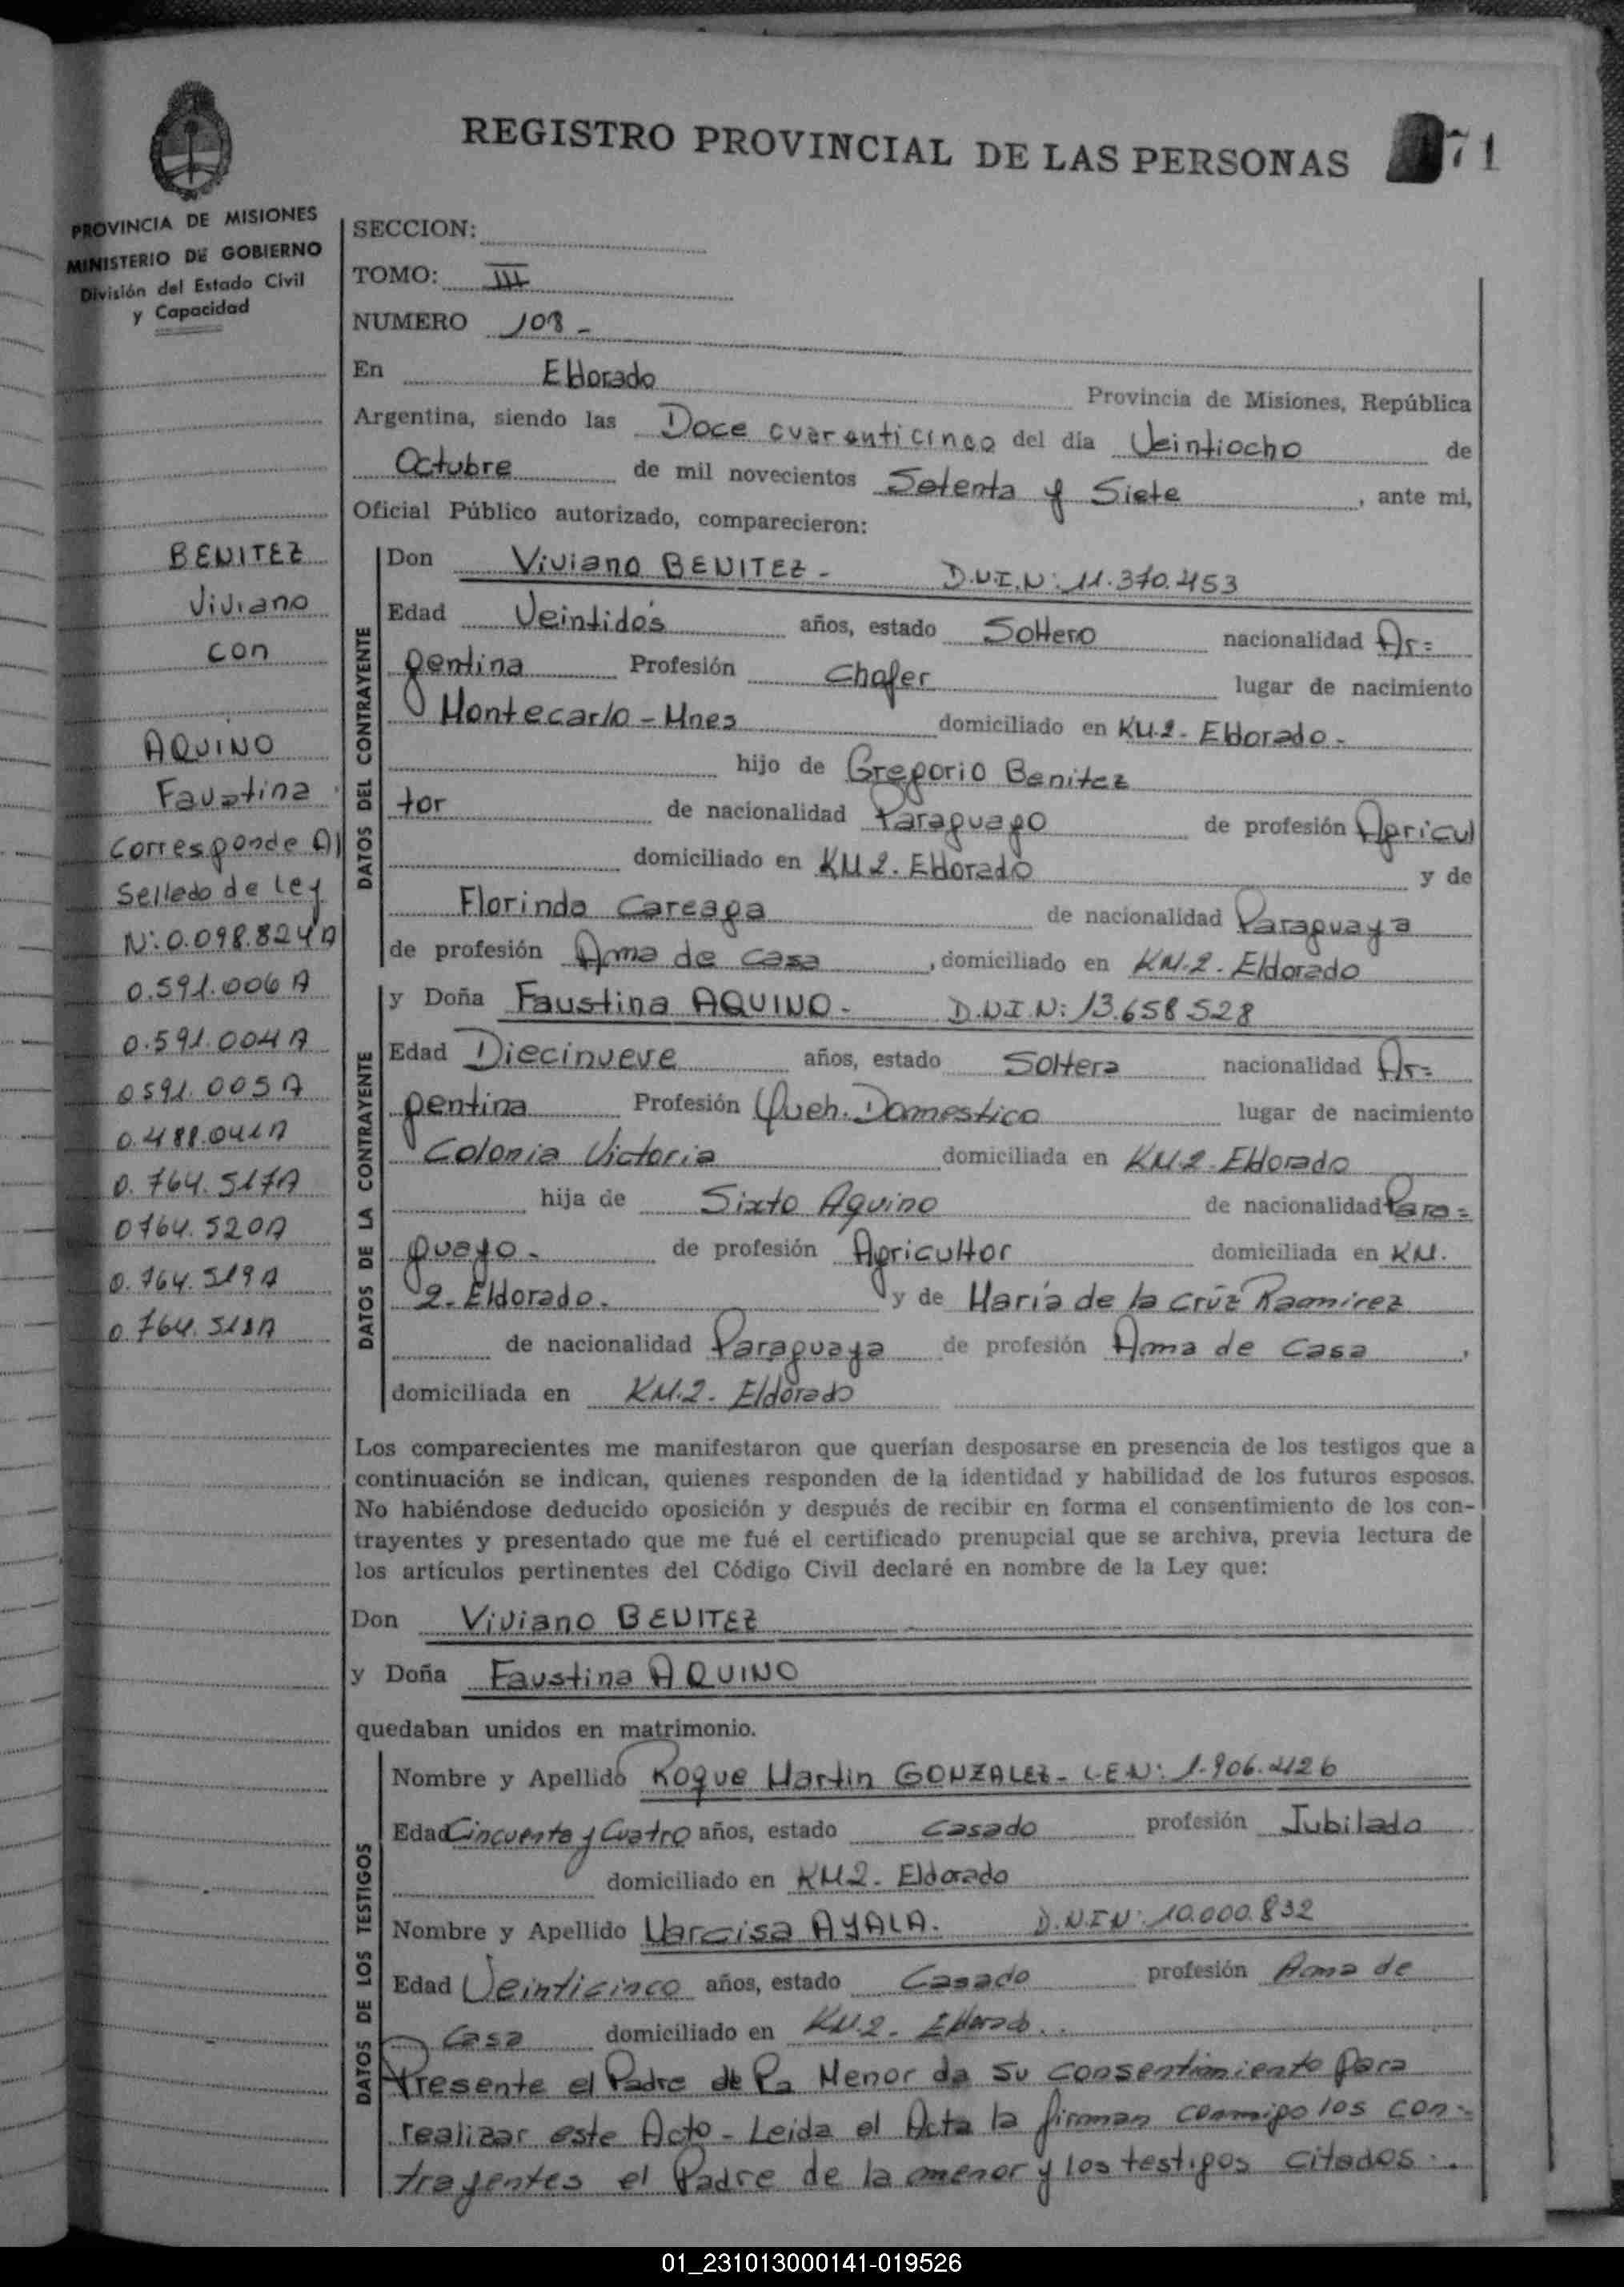 REGISTRO PROVINCIAL DE LAS PERSONAS
71
PROVINCIA DE MISIONES
MINISTERIO DE GOBIERNO
División del Estado Civil
y Capacidad
BENITEZ
Viviano
con
AQUINO
Faustina
Corresponde Al
Selledo de Ley
N: 0.098.824 A
0.591.006 A
0.591.004 A
0591.005 A
0.488.041 A
0.764.517 A
0764.520 A
0.764.519 A
0.764.518 A
SECCION:
TOMO: III
NUMERO 108 -
En Eldorado Provincia de Misiones, República
Argentina, siendo las Doce cuarenticinco del día Veintiocho de
Octubre de mil novecientos Setenta y Siete, ante mi,
Oficial Público autorizado, comparecieron:
DATOS DEL CONTRAYENTE
Don Viviano BENITEZ - D.N.I.N: 11.370.453
Edad Veintidós años, estado Soltero nacionalidad Ar=
gentina Profesión Chofer lugar de nacimiento
Montecarlo - Mnes domiciliado en KM.2 - Eldorado -
hijo de Gregorio Benitez
tor de nacionalidad Paraguayo de profesión Agricul
domiciliado en KM 2. Eldorado y de
Florinda Careaga de nacionalidad Paraguaya
de profesión Ama de casa, domiciliado en KM.2. Eldorado
DATOS DE LA CONTRAYENTE
y Doña Faustina AQUINO - D.N.I N: 13.658 528
Edad Diecinueve años, estado Soltera nacionalidad Ar=
gentina Profesión Queh. Domestico lugar de nacimiento
Colonia Victoria domiciliada en KM.2. Eldorado
hija de Sixto Aquino de nacionalidad Para=
guayo - de profesión Agricultor domiciliada en KM.
2. Eldorado. y de María de la Crúz Ramirez
de nacionalidad Paraguaya de profesión Ama de Casa,
domiciliada en KM.2 - Eldorado
Los comparecientes me manifestaron que querían desposarse en presencia de los testigos que a
continuación se indican, quienes responden de la identidad y habilidad de los futuros esposos.
No habiéndose deducido oposición y después de recibir en forma el consentimiento de los con-
trayentes y presentado que me fué el certificado prenupcial que se archiva, previa lectura de
los artículos pertinentes del Código Civil declaré en nombre de la Ley que:
Don Viviano BENITEZ
y Doña Faustina AQUINO
quedaban unidos en matrimonio.
DATOS DE LOS TESTIGOS
Nombre y Apellido Roque Martin GONZALEZ - L.E N: 1.906.426
Edad Cincuenta y Cuatro años, estado Casado profesión Jubilado
domiciliado en KM2 - Eldorado
Nombre y Apellido Narcisa AYALA. D.N.I N: 10.000.832
Edad Veinticinco años, estado Casado profesión Ama de
Casa domiciliado en KM.2 - Eldorado . .
Presente el Padre de la Menor da su consentimiento para
realizar este Acto - Leida el Acta la firman conmigo los con-
trayentes el Padre de la menor y los testigos citados - .
01_231013000141-019526